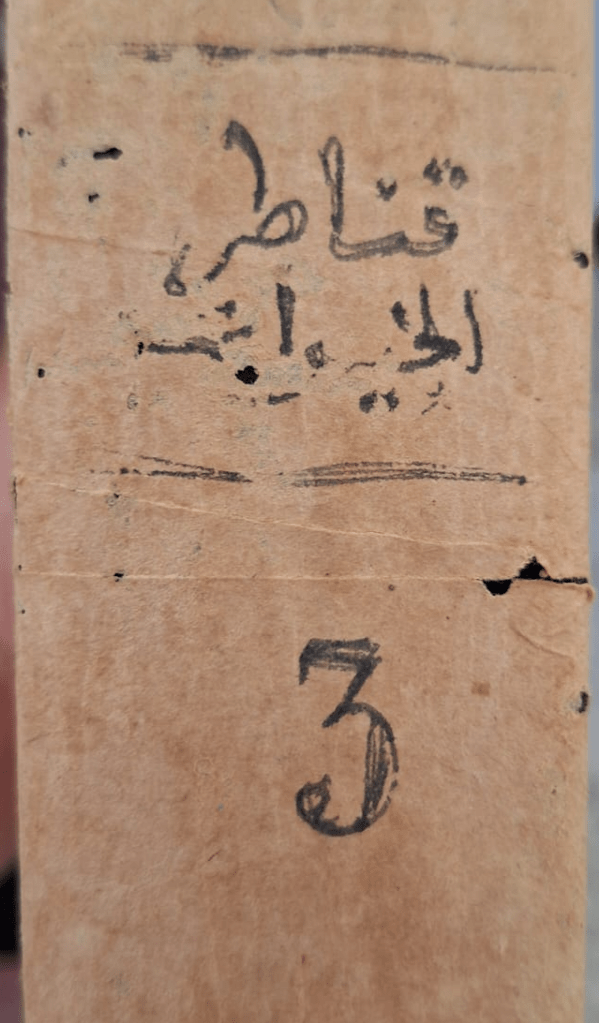 قناطر
الخيرات
3